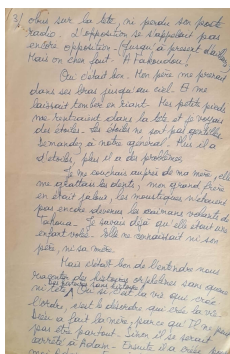 3/ obus sur la tête, ni perdu son poste
radio. L'opposition s'appelait pas
encore opposition. Jusqu'à présent d'ailleurs
Mais on s'en fout. À Makoudou!
Oui c'était bon. Mon père me prenait
dans ses bras jusqu'au ciel. Et me
laissait tomber en riant. Mes petits pieds
me rentraient dans la tête et je voyais
des étoiles. Les étoiles ne sont pas gentilles
Demandez à notre général. Plus il a
d'étoiles, plus il a des problèmes.
Je me couchais auprès de ma mère, elle
me grattait le dos, mon grand frère
en était jaloux, les moustiques n'étaient
pas encore devenus les animaux volants de
Tahoua. Je savais déjà qu'elle était une
enfant volée. Elle ne connaissait ni son
père, ni sa mère.
Mais c'était bon de l'entendre nous
raconter des histoires orphelines sans queue
ni tête. C'est la vie qui crée
l'ordre, c'est le désordre qui crée la vie.
Dieu a fait la mère, parce qu'Il ne peut
pas être partout. Sinon il se serait
arrêté à Adam. Ensuite il a créé